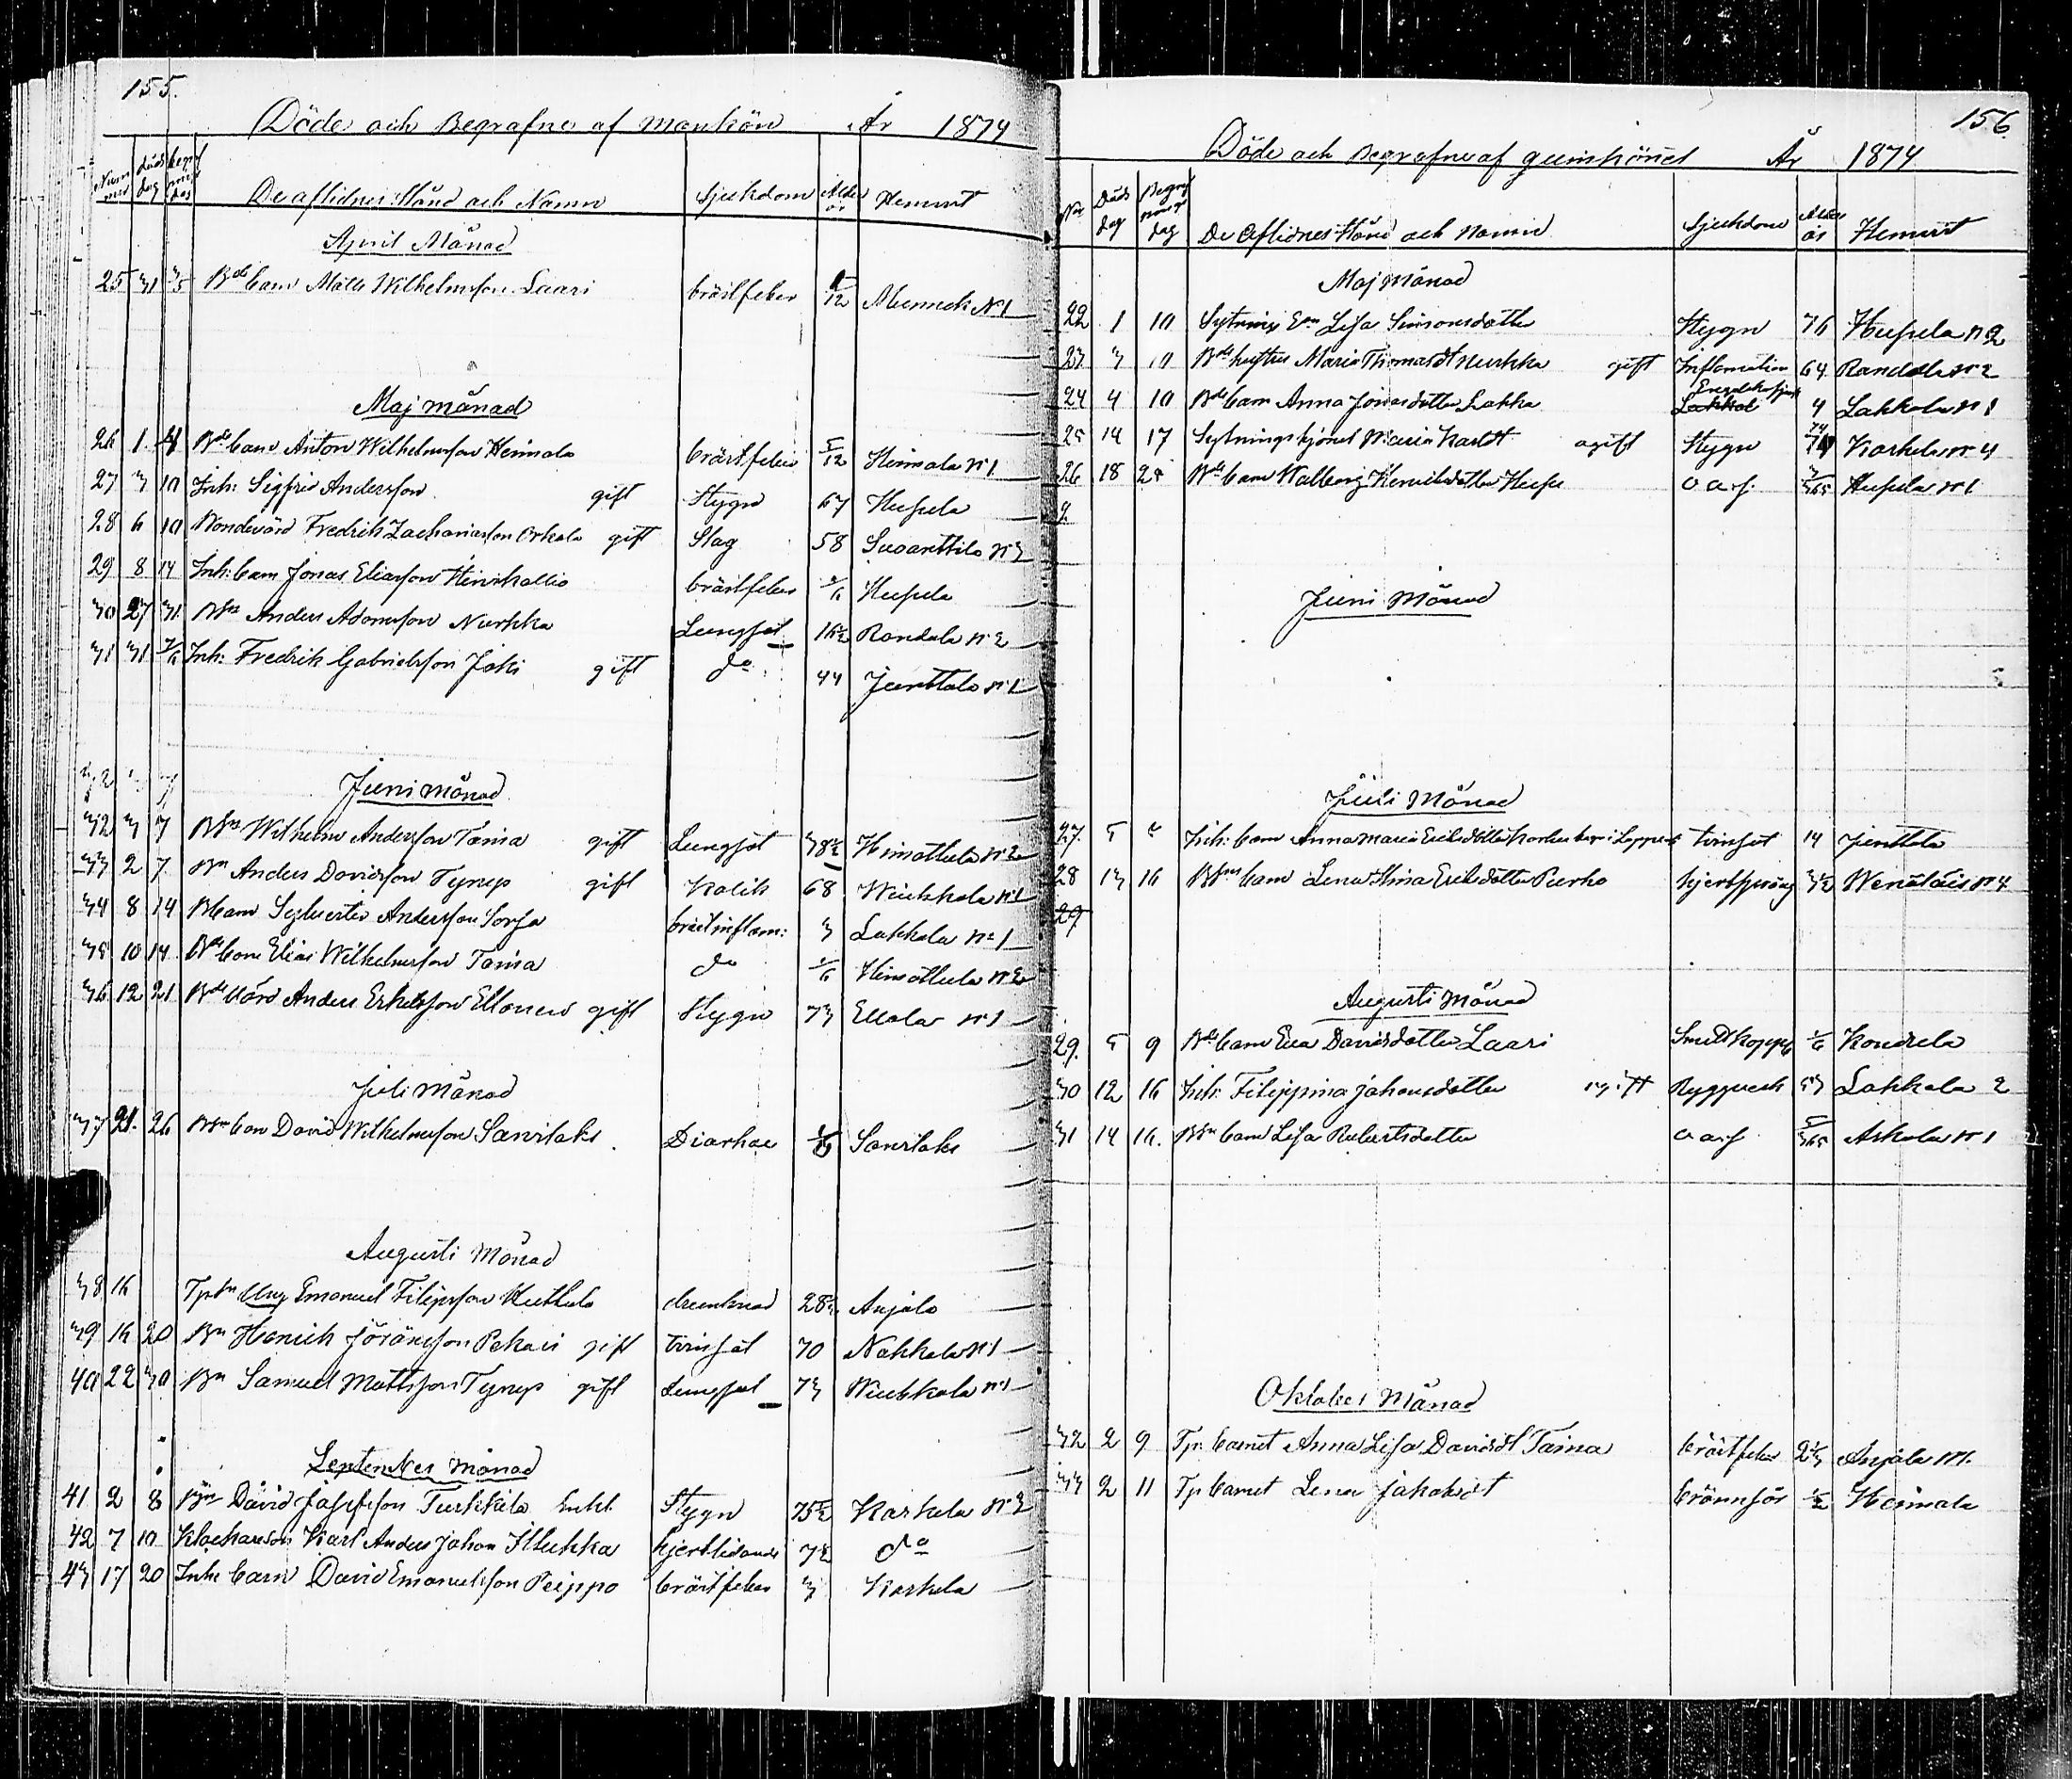 155.
Döde och Begrafne af mankön År 1874
Num mer Döds dag begrafnings dag De aflidnes Stånd och Namn Sjukdom Ålder år Hemvist
April Månad
25 31 3/5 Bds barn Matts Wilhelmsson Laari bröstfeber /12 Mennick N 1
Maj månad
26 1 4 Bds barn Anton Wilhelmsson Heimala bröstfeber 5/12 Heimala N 1
27 3 10 Inh: Sigfrid Andersson gift Stygn 67 Hupela
28 6 10 Bondevärd Fredrik Zachariasson Orkola gift Slag 58 Suoanttila N 3
29 8 14 Inh: barn Jonas Eliasson Hinskallio bröstfeber /6 Hupela
30 27 31 Bs Anders Adamsson Nurkka Lungsot 16½ Randala N 2
31 31 /6 Inh: Fredrik Gabrielsson Joki gift do 44 Junttala N 1
Juni månad
32 3 7 Bs Wilhelm Andersson Taina gift Lungsot 38½ Himottula N 2
33 2 7 Bn Anders Davidsson Tyrup gift Kolik 68 Wiukkala N 1
34 8 14 B barn Sylvester Andersson Sorsa bröstinflam: 3 Lakkala N 1
35 10 14 Bds barn Elias Wilhelmsson Taina do /6 Himottula N 2
36 12 21 Bds värd Anders Eriksson Ellonen gift Stygn 73 Ellola N 1
Juli Månad
37 21 26 Bs barn David Wilhelmsson Sanilaks Diarhae Sanilaks
Augusti Månad
38 16 Tp Emanuel Filipsson Huttula drunknad 28 Anjala
39 16 20 Bn Henrik Jöransson Pekari gift tvinsot 70 Nakkala N 1
40 22 30 Bn Samuel Mattsson Tyrup gift Lungsot 73 Wiukkala N 1
September månad
41 2 8 Bn David Josefsson Turkkila Enkl. Stygn 75½ Karkela N 2
42 7 10 Klockareson Karl Anders Johan Illukka hjertlidande 7½ do
43 17 20 Inh: barn David Emanuelsson Peippo bröstfeber 3 Karkela
156.
Döde och Begrafne af qvinkönet År 1874
No Döds dag Begrafnings dag De Aflidnes Stånd och Namn Sjukdom Ålder år Hemvist
Maj Månad
22 1 10 Sytnings Lisa Simonsdotter Stygn 76 Hupela N 2
23 3 10 Bds hustru Maria Thomasdt Nurkka gift Inflamation 64 Randala N 2
24 4 10 Bds barn Anna Jonasdotter Lakka Engelska sjuk 4 Lakkala N 1
25 14 17 Sytningshjonet Maria Karldt ogift Stygn 74 Karkela N 4
26 18 25 Bds barn Walborg Henriksdotter Hupu o a s /365 Hupela N 1
Juni Månad
Juli Månad
27 5 5 Inh: barn Anna Maria Eriksdotter tvinsot 14 Junttala
28 13 16 Bs barn Lena Stina Eriksdotter Purho hjertsprång 3½ Wenäläis N 4
29
Augusti Månad
29 5 9 Bds barn Eva Davidsdotter Laari Smittkoppor /6 Koudela
30 12 16 Inh: Filippina Johansdotter ogift Ryggverk 53 Lakkala 2
31 14 16 Bs barn Lisa Robertsdotter o a s 5/365 Askola N 1
Oktober Månad
32 2 9 Tp: barnet Anna Lisa Davidsdt Taina bröstfeber 2 Anjala N 1
33 2 11 Tp barnet Lena Jakobsdt brännsår ½ Heimala